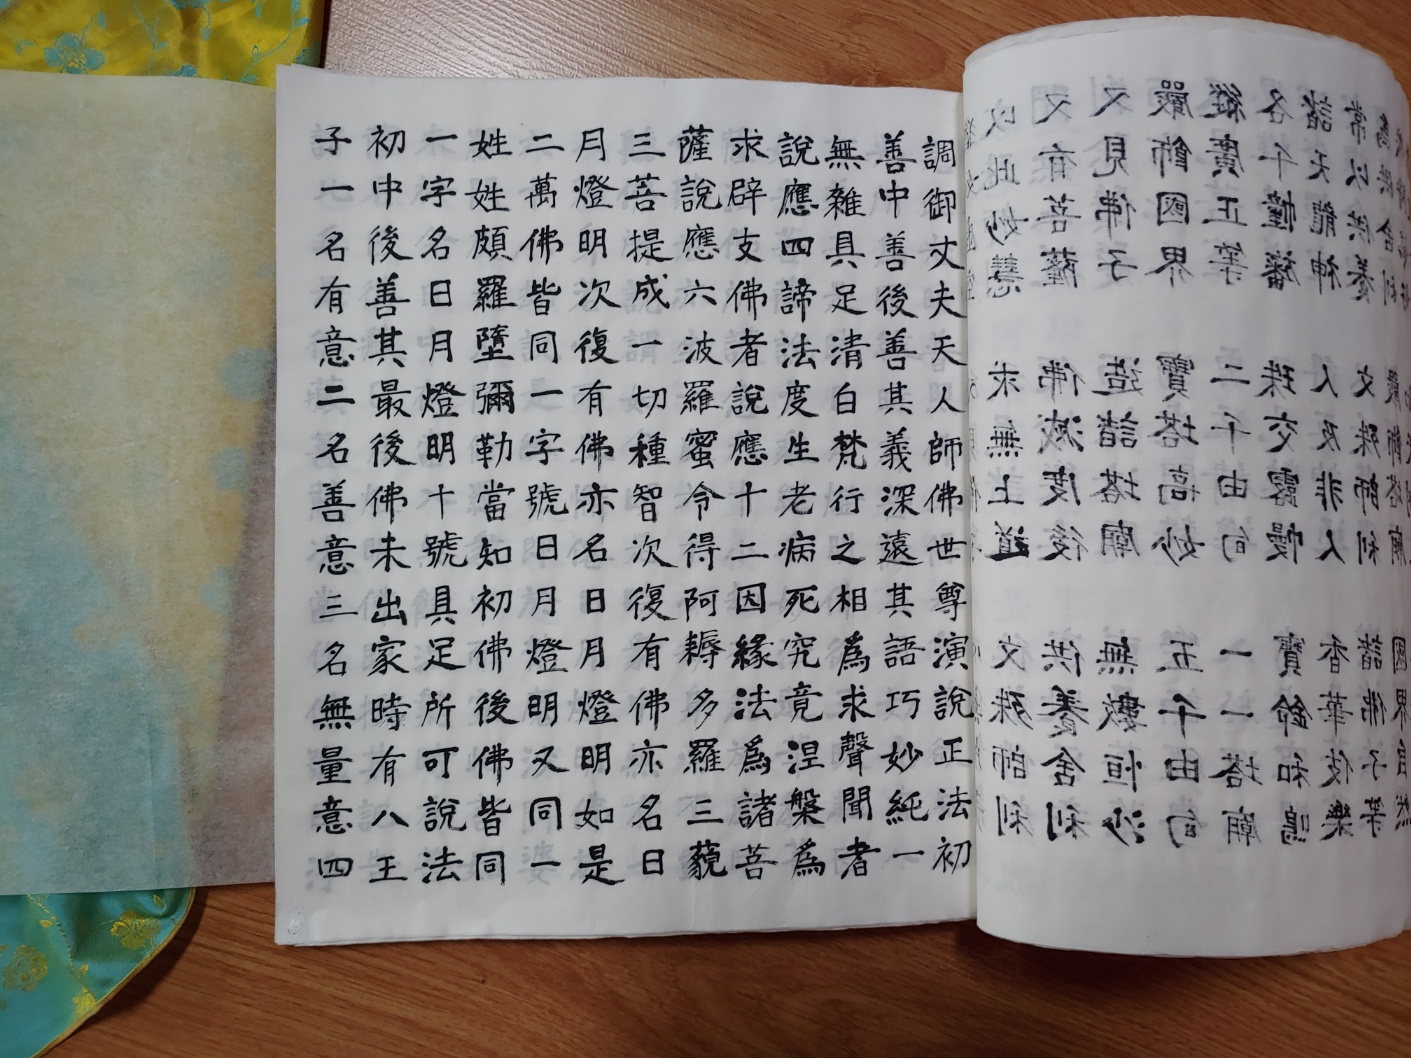 調御丈夫天人師佛世尊演說正法初
善中善後善其義深遠其語巧妙純一
無雜具足清白梵行之相爲求聲聞者
說應四諦法度生老病死究竟涅槃爲
求辟支佛者說應十二因緣法爲諸菩
薩說應六波羅蜜令得阿耨多羅三藐
三菩提成一切種智次復有佛亦名日
月燈明次復有佛亦名日月燈明如是
二萬佛皆同一字號日月燈明又同一
姓姓頗羅墮彌勒當知初佛後佛皆同
一字名日月燈明十號具足所可說法
初中後善其最後佛未出家時有八王
子一名有意二名善意三名無量意四
以此妙慧 求無上道 文殊師利
又有菩薩 佛滅度後 供養舍利
又見佛子 造諸塔廟 無數恒沙
嚴飾國界 寶塔高妙 五千由旬
縱廣正等 二千由旬 一一塔廟
各千幢旛 珠交露幔 寶鈴和鳴
諸天龍神 人及非人 香華伎樂
常以供養 文殊師利 諸佛子等
爲供舍利 嚴飾塔廟 國界自然